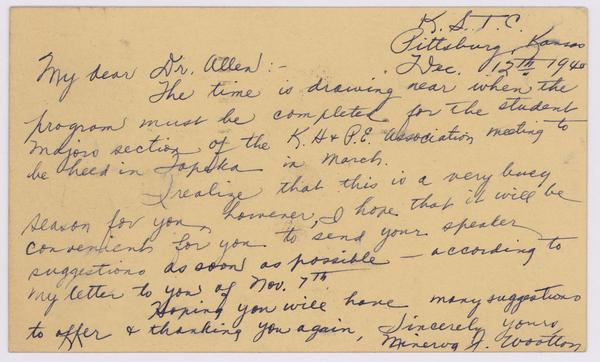 K. S. T. C.
Pittsburg, Kansas
Dec. 12th 1940
My dear Dr. Allen:-
The time is drawing near when the
program must be completed for the student
majors section of the K. H & P.E. Association meeting to
be held in Topeka in March.
I realize that this is a very busy
season for you, however, I hope that it will be
convenient for you to send your speaker
suggestions as soon as possible - according to
my letter to you of Nov. 7th
Hoping you will have many suggestions
to offer & thanking you again, Sincerely yours,
Minerva A. Wootton